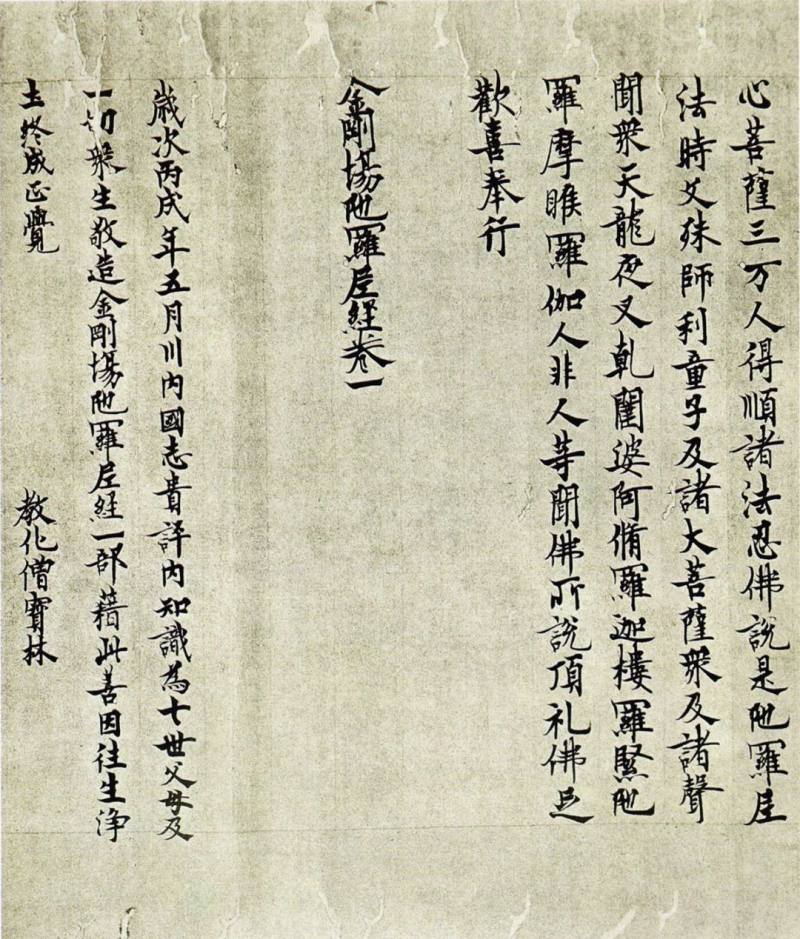 心菩薩三万人得順諸法忍佛說是陁羅尼
法時文殊師利童子及諸大菩薩衆及諸聲
聞衆天龍夜叉乹闥婆阿脩羅迦樓羅緊陁
羅摩睺羅伽人非人等聞佛所說頂礼佛足
歡喜奉行
金剛場陁羅尼経卷一
歲次丙戌年五月川內國志貴評內知識為七世父母及
一切衆生敬造金剛場陁羅尼経一部藉此善因往生浄
土終成正覺
教化僧寶林